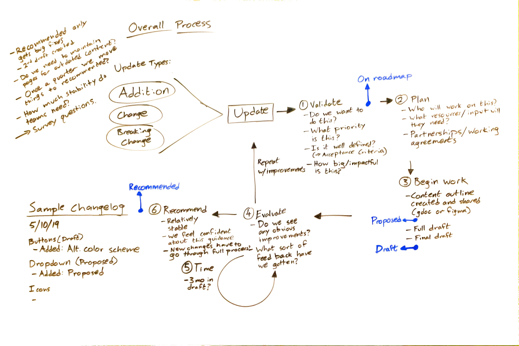 Overall Process
- Recommended only
gets bug fixes
- 2nd draft created
- Do we need to maintain
pages for outdated content?
- Once a quarter we move
things to recommended?
- How much stability do
teams need?
→ Survey questions.
Update Types:
Addition
Change
Breaking
Change
Update
① Validate
- Do we want to
do this?
- What priority
is this?
- Is it well defined?
(→ Acceptance Criteria)
- How big/impactful
is this?
On roadmap
② Plan
- Who will work on this?
- What resources/input will
they need?
- Partnerships/working
agreements
③ Begin work
- Content outline
created and shared
(gdoc or figma)
Proposed
- Full draft
- Final draft
Draft
④ Evaluate
- Do we see
any obvious
improvements?
- What sort of
feedback have
we gotten?
Repeat
w/improvements
⑤ Time
- 3mo in
draft?
⑥ Recommend
- Relatively
stable
- We feel confident
about this guidance
- New changes have to
go through full process
Recommended
Sample Changelog
5/10/19
Buttons (Draft)
- Added: Alt. color scheme
Dropdown (Proposed)
- Added: Proposed
Icons
-